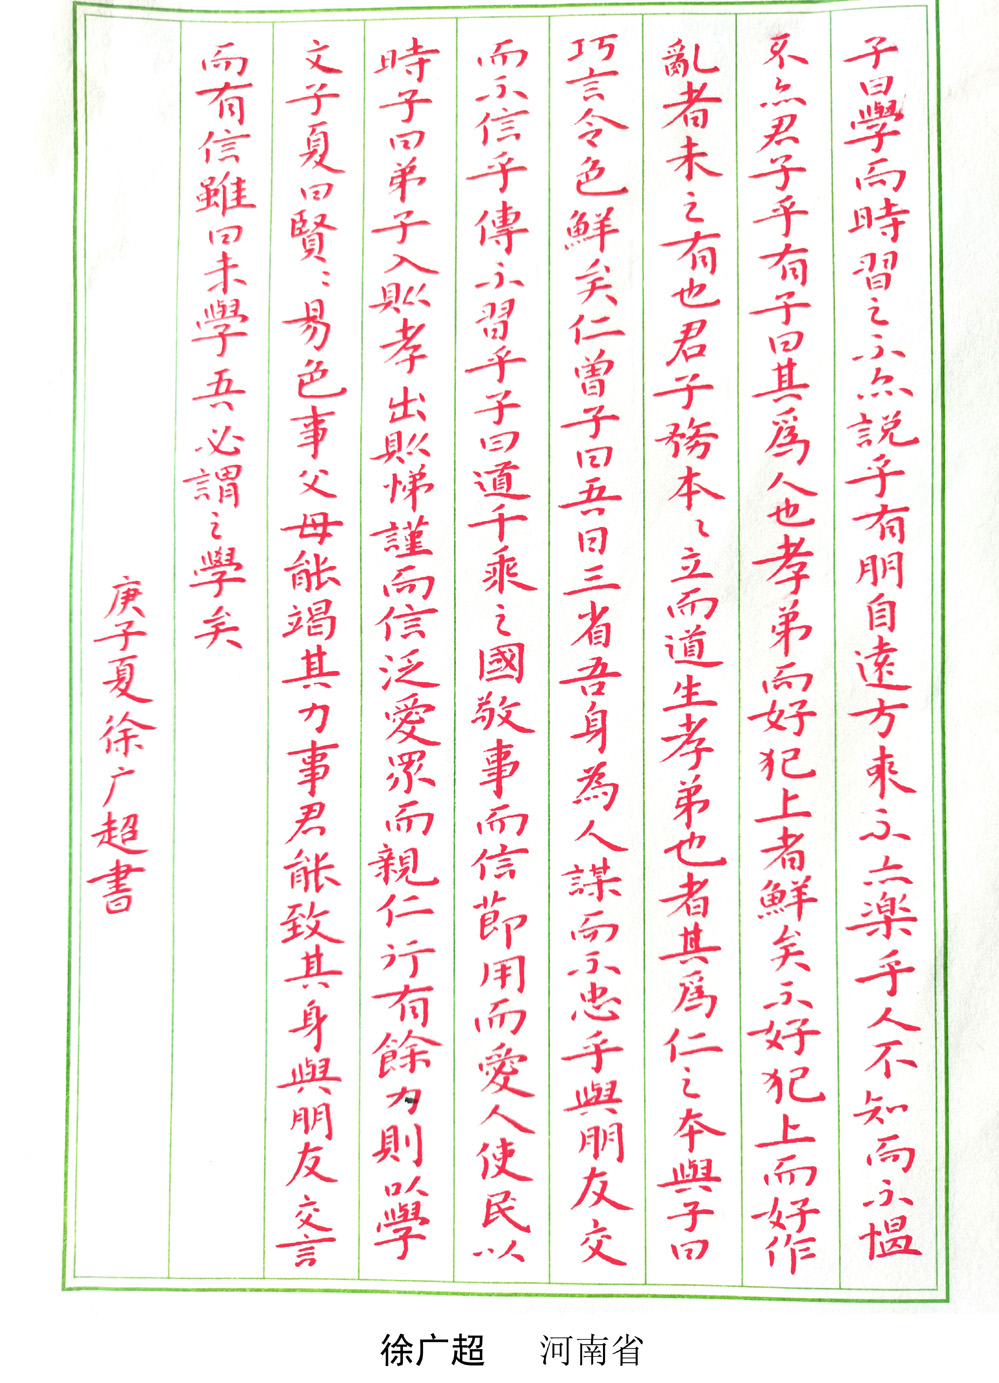 子曰學而時習之不亦説乎有朋自遠方來不亦楽乎人不知而不愠
不亦君子乎有子曰其爲人也孝弟而好犯上者鮮矣不好犯上而好作
亂者未之有也君子務本〻立而道生孝弟也者其爲仁之本與子曰
巧言令色鮮矣仁曽子曰吾日三省吾身為人謀而不忠乎與朋友交
而不信乎傳不習乎子曰道千乘之國敬事而信節用而愛人使民以
時子曰弟子入則孝出則悌謹而信泛愛眾而親仁行有餘力則以學
文子夏曰賢〻易色事父母能竭其力事君能致其身與朋友交言
而有信雖曰未學吾必謂之學矣
庚子夏徐广超書
徐广超 河南省